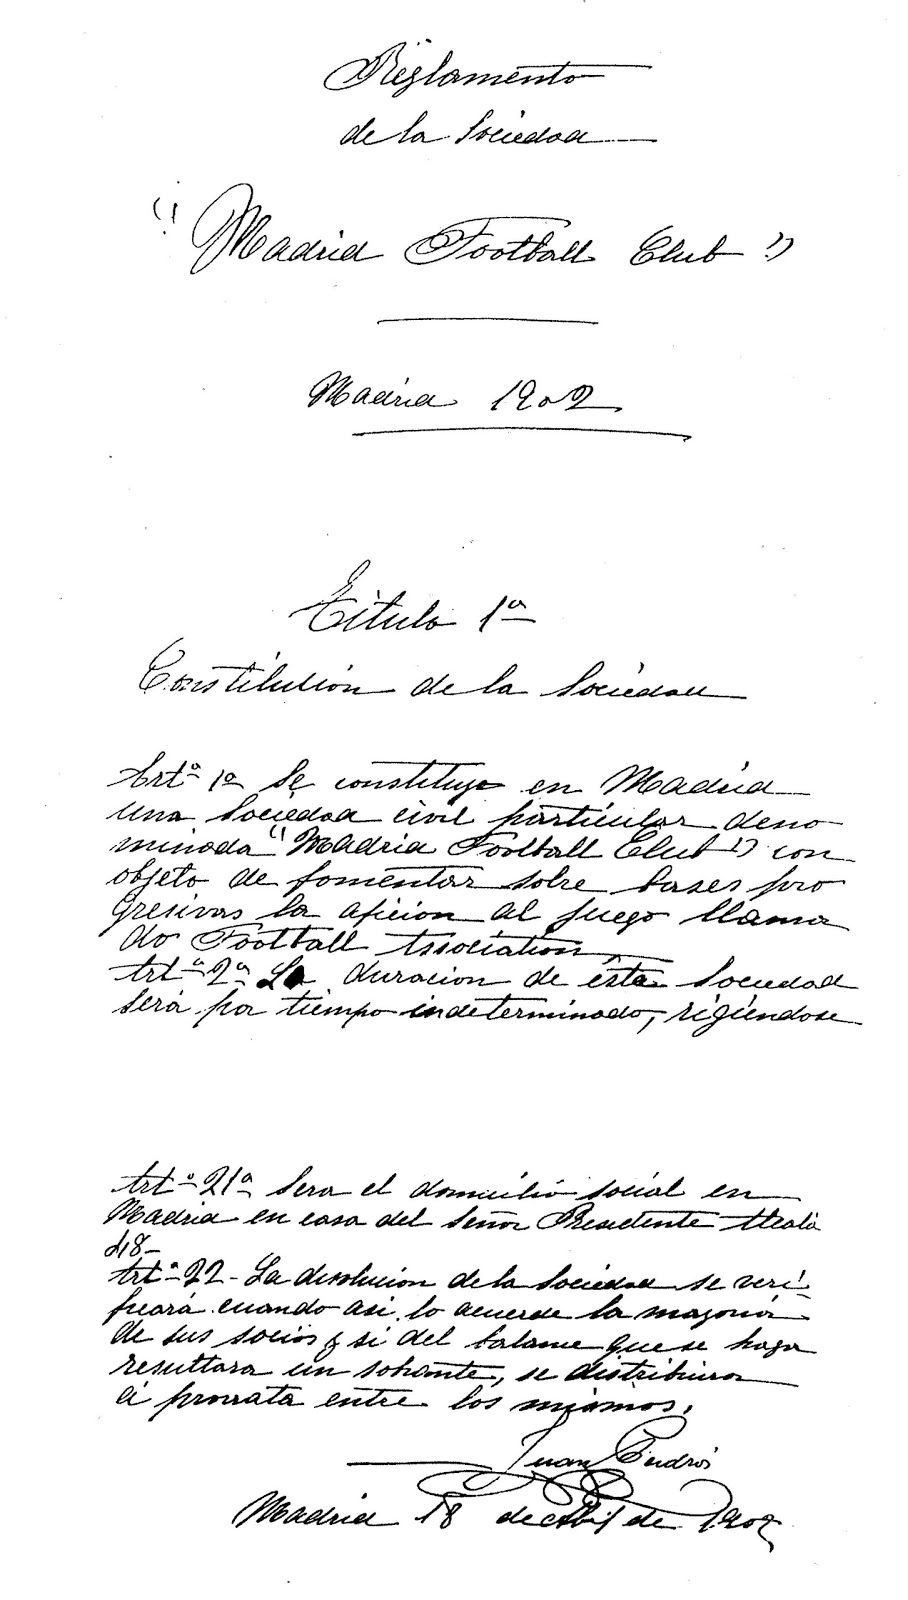 Reglamento
de la Sociedad
"Madrid Football Club"
Madrid 1902
Titulo 1º
Constitución de la Sociedad
Artº 1º Se constituye en Madrid
una Sociedad civil particular deno
minada "Madrid Football Club" con
objeto de fomentar sobre bases pro
gresivas la aficion al juego llama
do Football Association,
Artº 2º La duracion de ésta Sociedad
será por tiempo indeterminado, rigiendose
Artº 21º Sera el domicilio social en
Madrid en casa del Señor Presidente Alcalá
48-
Artº 22- La disolucion de la Sociedad se veri-
ficará cuando asi lo acuerde la mayoria
de sus socios y si del balance que se haga
resultara un sobrante, se distribuira
á prorrata entre los mismos.
Juan Padrós
Madrid 18 de Abril de 1902